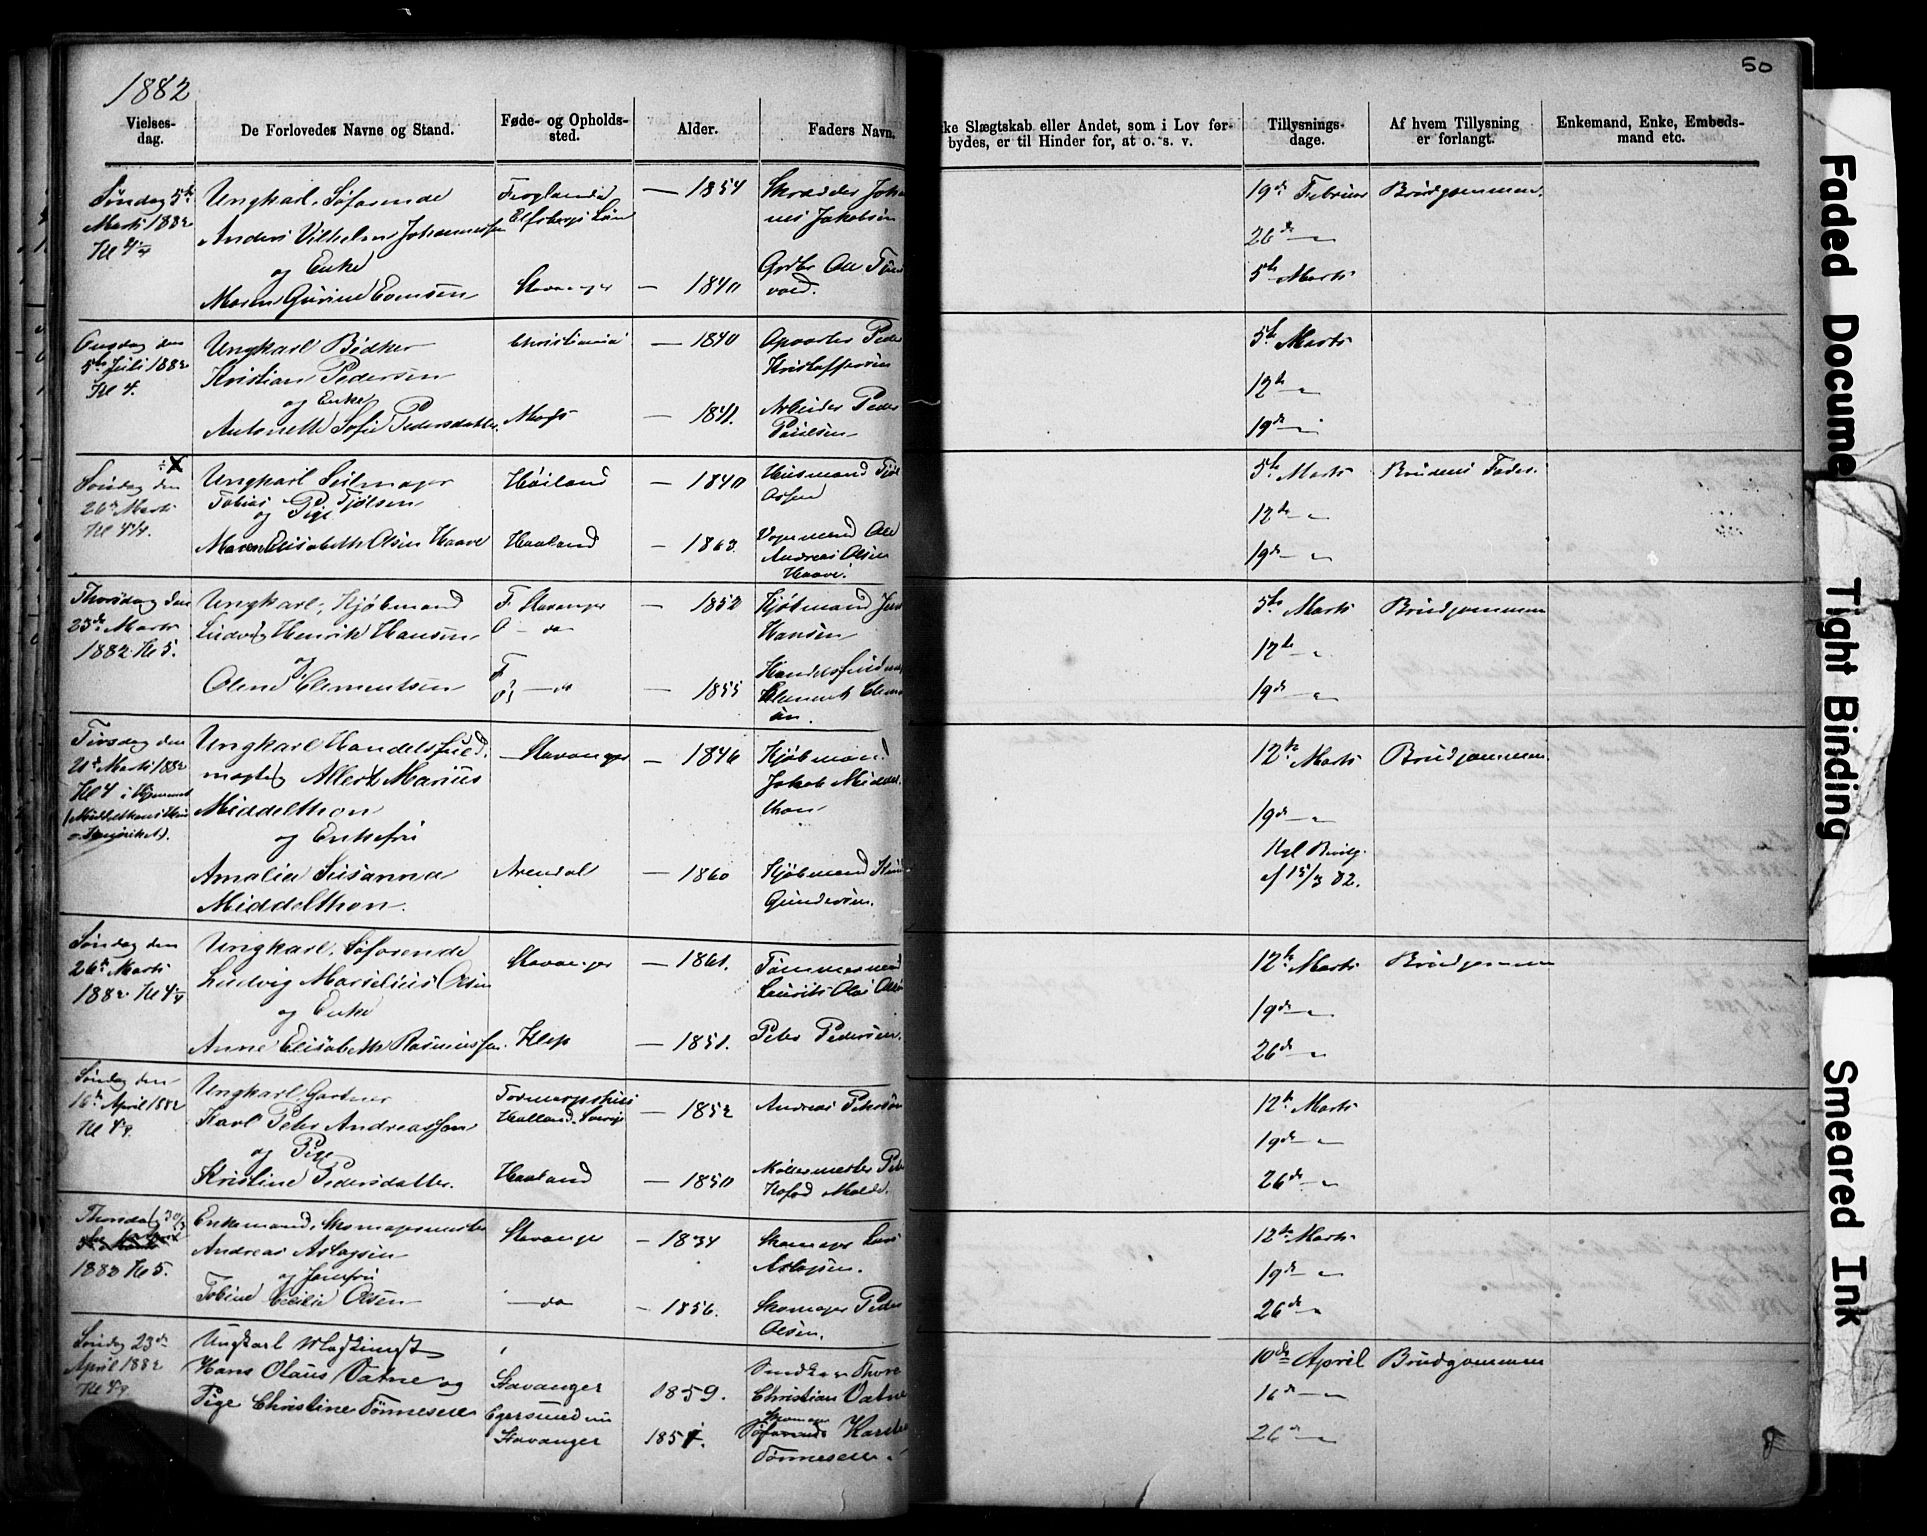 1882
50
Vielses-
dag.
De Forlovedes Navne og Stand.
Føde- og Opholds-
sted.
Alder.
Faders Navn.
ike Slægtskab eller Andet, som i Lov for-
bydes, er til Hinder for, at o. s. v.
Tillysnings-
dage.
Af hvem Tillysning
er forlangt.
Enkemand, Enke, Embeds-
mand etc.
Søndag 5te
Marts 1882
Ungkarl, Søfarende
Anders Vilhelm Johannessen
og Enke
Maren Gurine Evensen
Elfsborgs Län
Stavanger
— 1854
— 1840
Skrædder Joha
nes Jakobsen
19de Februar
26de — "
5te Marts
Brudgommen
Onsdag den
5te Juli 1882
Kl 4.
Ungkarl Bødker
Kristian Pedersen
og Enke
Antonette Sofie Pedersdatter
Christiania
— 1840
— 1841.
Opvarter Peder
Kristoffersen
Arbeider Peder
Paulsen
5te Marts
12te — "
19de — "
Søndag den
26de Marts
Kl 4¼.
Ungkarl Seilmager
Tobias Tjølsen
og Pige
Maren Elisabeth Olsen Haave
Høiland
Haaland
— 1840
— 1863.
Husmand
Vognmand Ole
Andreas Olsen
Haave.
5te Marts
12te — "
19de — "
Brudens Fader.
Thorsdag den
23de Marts
1882 Kl 5.
Ungkarl, Kjøbmand
Ludvig Henrik Hansen
og
Oline Clementsen
F. Stavanger
O — do
F
O — do
— 1852
— 1855
Kjøbmand Jens
Hansen
5te Marts
12te — "
19de — "
Brudgommen
Tirsdag den
21de Marts 1882
Kl 4 i Hjemmet
Ungkarl Handelsfuld-
mægtig Allert Marius
Middelthon
og Enkefru
Amalia Susanna
Middelthon.
Stavanger
Arendal
— 1846
— 1860
Kjøbmand
Jakob Middel
thon
Kjøbmand
Gundersen.
12te Marts
19de — "
Kgl Bevilg.
af 15/3 82.
Brudgommen
Søndag den
26de Marts
1882 Kl 4¼
Ungkarl, Søfarende
Ludvig Marselius Olsen
og Enke
Anne Elisabeth Rasmussen.
Stavanger
Klep
— 1861.
— 1851.
Tømmermand
Laurits Olai Olsen
Peter Pedersen.
12te Marts
19de — "
26de — "
Brudgommen
Søndag den
16de April 1882
Ungkarl, Gartner
Karl Peter Andreassson
og Pige
Kristine Pedersdatter.
Halland, Sverige
Haaland
— 1852
— 1850
Andreas
Møllermester
12te Marts
19de — "
26de — "
Thorsdag 30/3
1882 Kl 5.
Enkemand, Skomagermester
Andreas Aslagsen
og Jomfru
Tobine Cecilie Olsen
Stavanger
— do
— 1834
— 1856.
Skomager
Aslagsen.
Skomager Peder
Olsen.
12te Marts
19de — "
26de "
Søndag 23de
April 1882
Ungkarl Maskinist
Hans Olaus Vatne og
Pige Christine Tönnesen
Stavanger
Egersund nu
Stavanger
1859.
1851.
Snedker Thore
Christian Vatne
Skomager
Søfarende
Tönnesen.
10de April
16de —
26de —
Brudgommen
Faded Document
Tight Binding
Smeared Ink